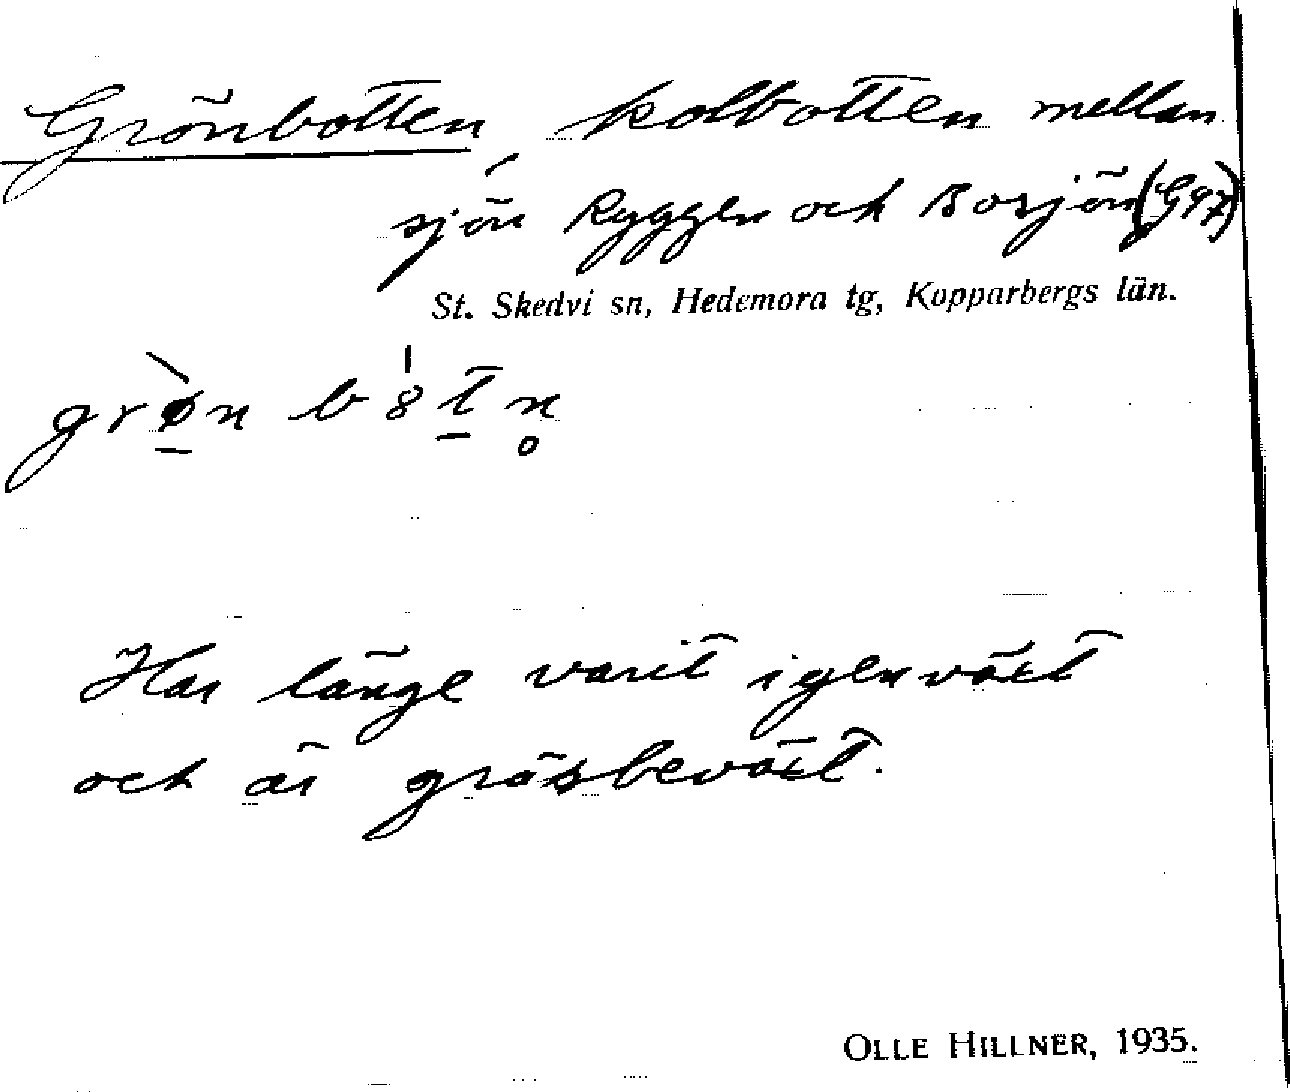 Grönbotten kolbotten mellan
sjön Ryggen och Borsjön
St. Skedvi sn, Hedemora tg, Kopparbergs län.
Har länge varit igenväxt
och är gräsbeväxt.
OLLE HILLNER, 1935.